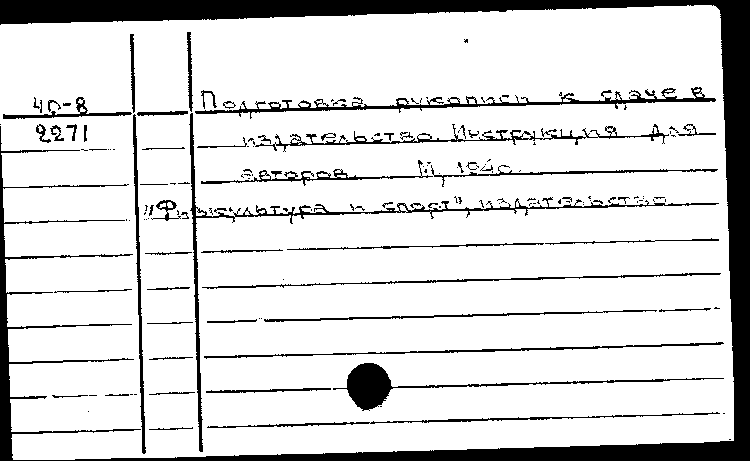 40-8
2271
Подготовка рукописи к сдаче в
издательство. Инструкция для
авторов. М, 1940.
"Физкультура и спорт", издательство